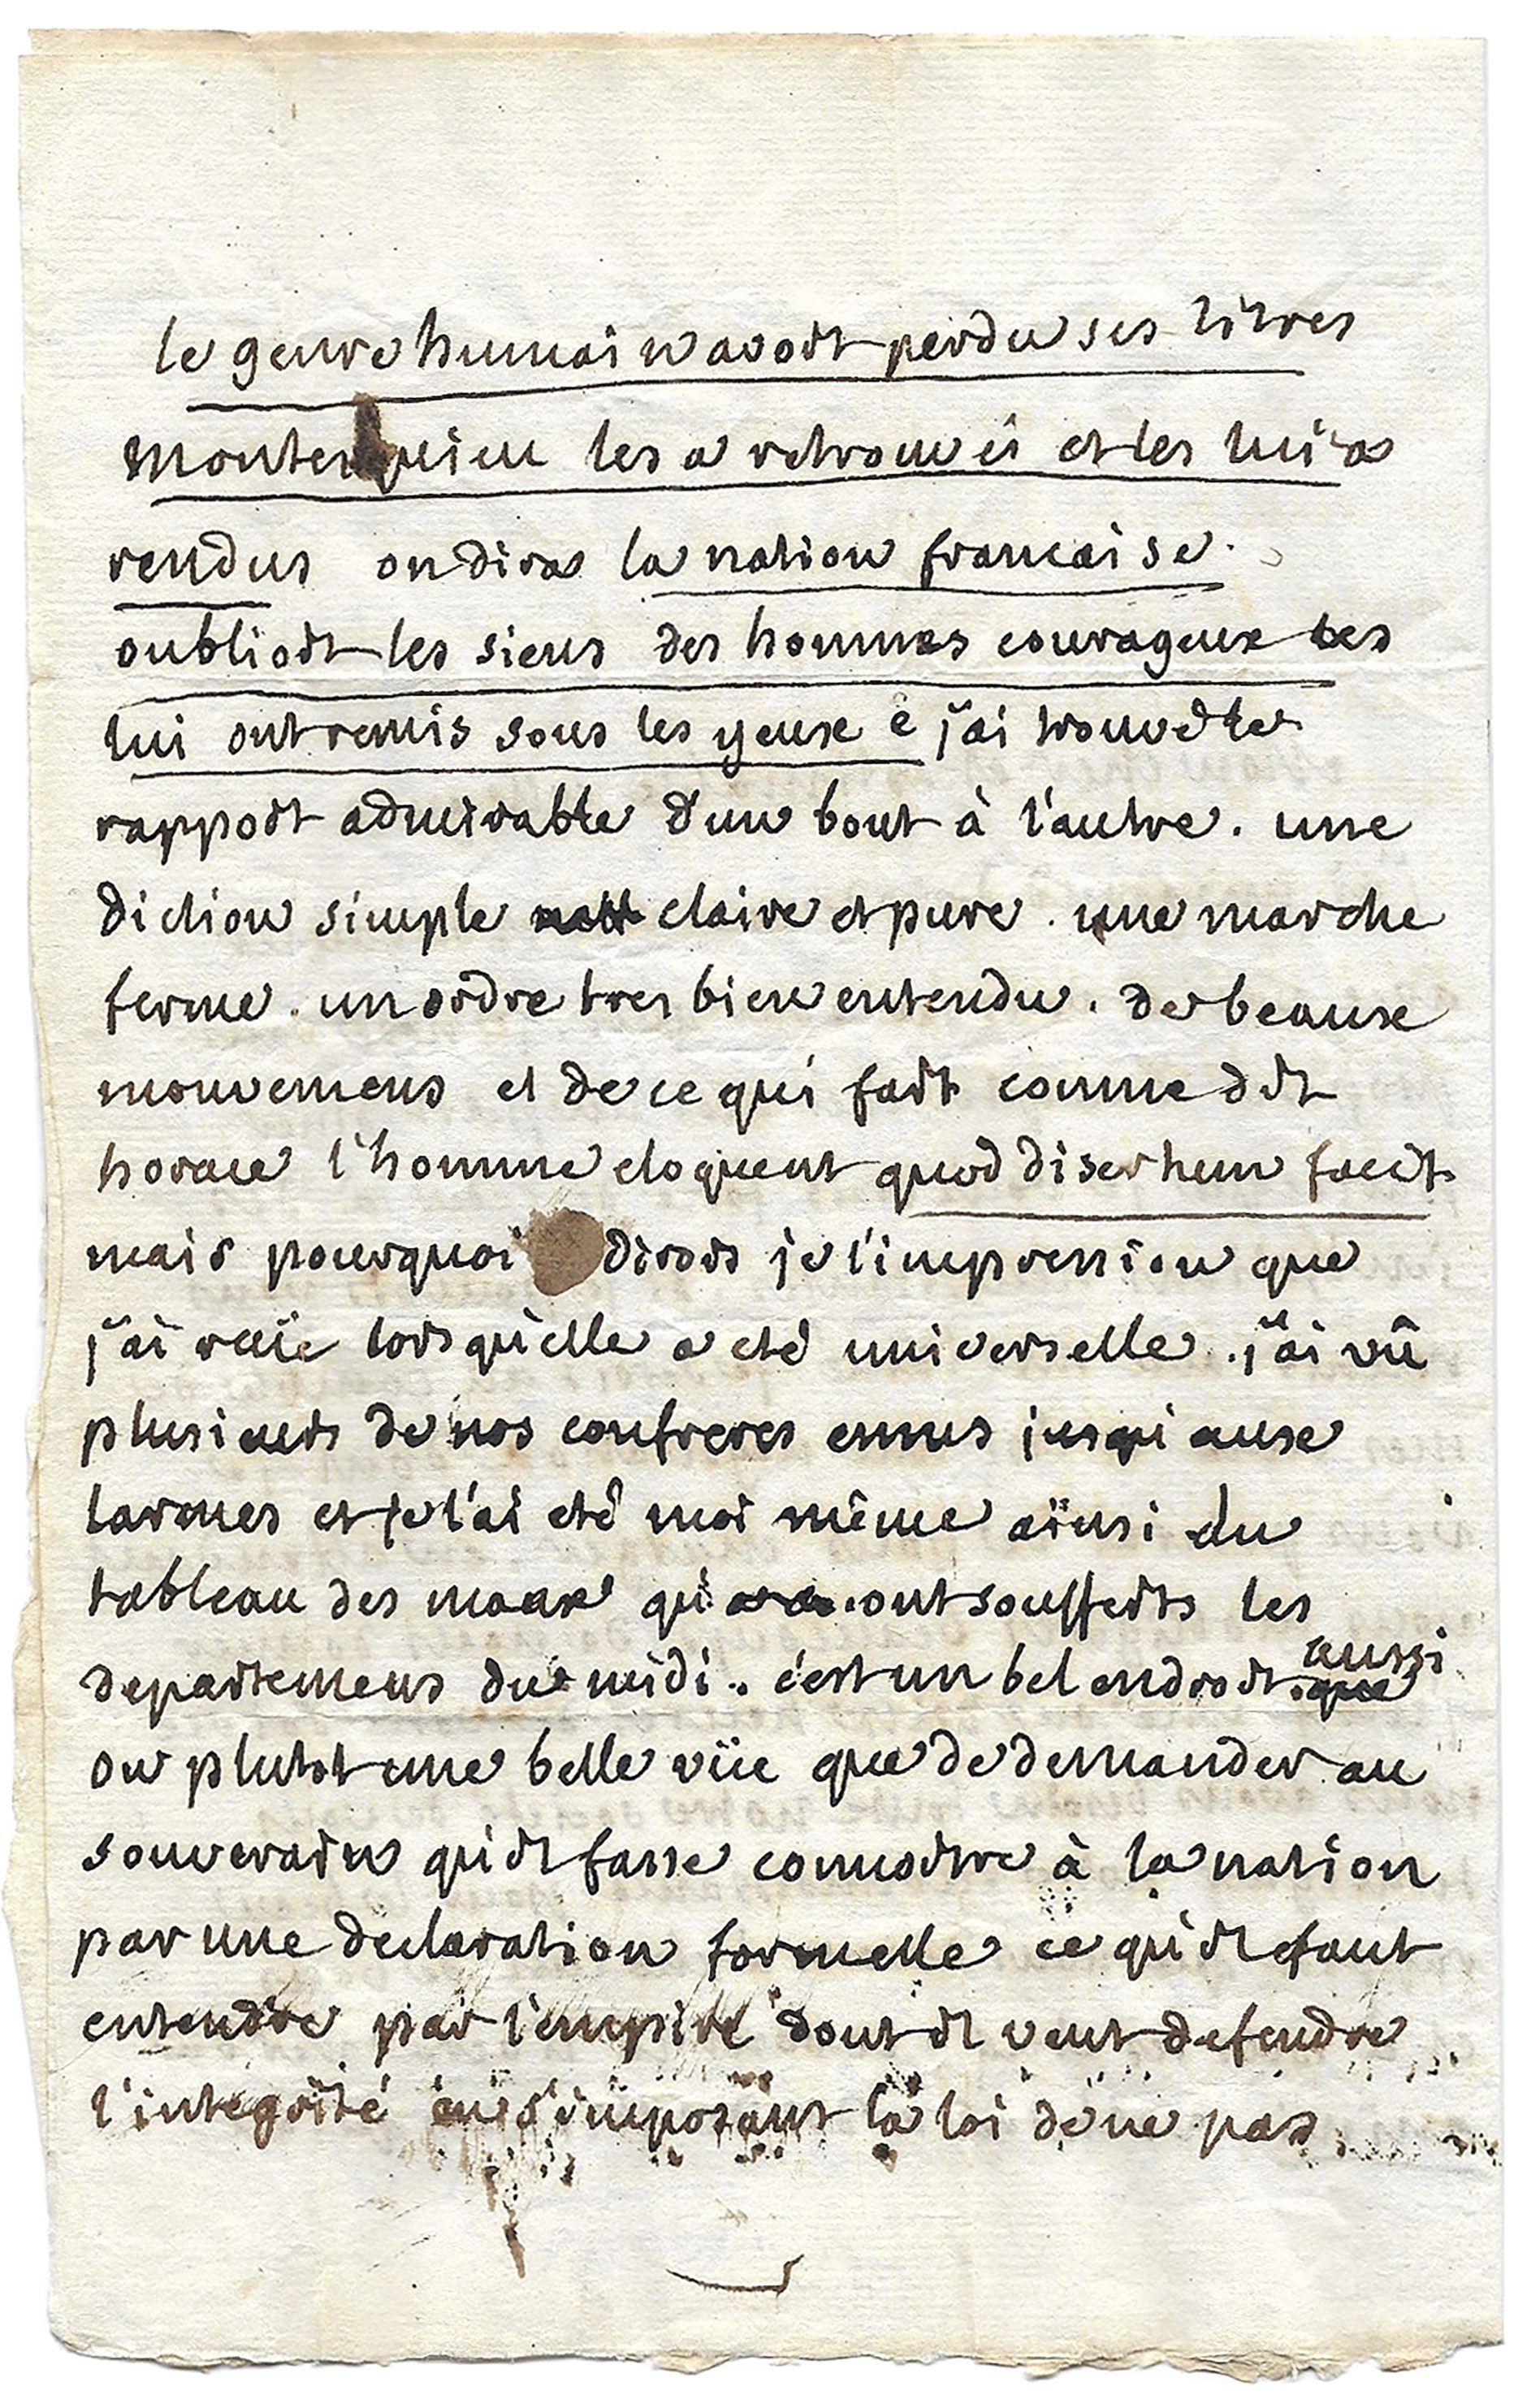 le genre humain avoit perdu ses titres
montesquieu les a retrouvés et les lui a
rendus on dira la nation francaise
oublioit les siens des hommes courageux les
lui ont remis sous les yeux j'ai trouvé le
rapport admirable d'un bout à l'autre. une
diction simple claire et pure. une marche
ferme. un ordre tres bien entendu. de beaux
mouvemens et de ce qui fait comme dit
horace l'homme eloquent quod disertum facit
mais pourquoi dirois je l'impression que
j'ai reçüe lorsqu'elle a eté universelle. j'ai vû
plusieurs de nos confreres emus jusqu'aux
larmes et je l'ai eté moi même aïnsi du
tableau des maux qu'ont soufferts les
departemens du midi.. c'est un bel endroit aussi
ou plutot une belle vüe que de demander au
souverain qu'il fasse connoitre à la nation
par une declaration formelle ce qu'il faut
entendre par l'empire dont il veut defendre
l'intégrité en s'imposant la loi de ne pas